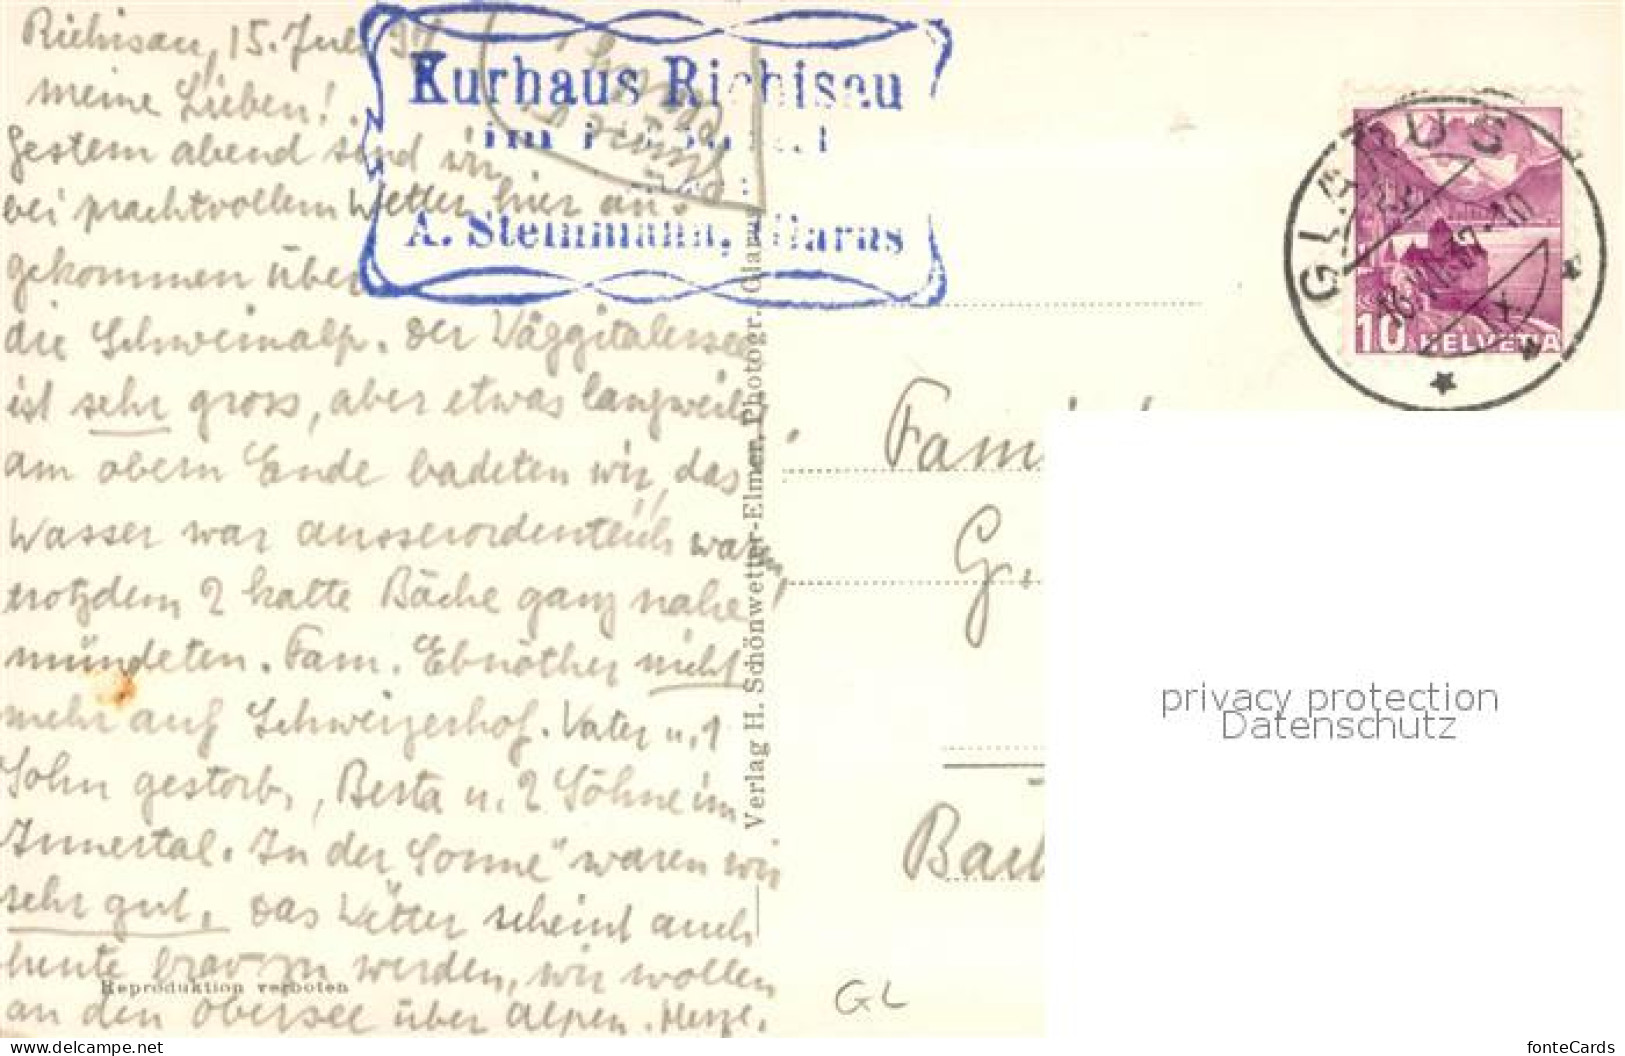 Richisau, 15. Juli 37
meine Lieben!
Gestern abend sind wir
bei prachtvollem Wetter hier an-
gekommen über
die Schweinalp. Der Wäggitalersee
ist sehr gross, aber etwas langweilig,
am obern Ende badeten wir, das
Wasser war ausserordentlich warm,
trotzdem 2 kalte Bäche ganz nahe
mündeten. Fam. Ebnöther nicht
mehr auf Schweizerhof. Vater u. 1
Sohn gestorb., Berta u. 2 Söhne im
Innertal. In der "Sonne" waren wir
sehr gut. Das Wetter scheint auch
heute brav zu werden, wir wollen
an den Obersee über Alpen. Herzl.
Kurhaus Richisau
im
A. Steinmann, Glarus
Verlag H. Schönwetter-Elmer, Photogr. Glarus
Reproduktion verboten
GLARUS
16.VII.37-10
IX
10 HELVETIA
Fam
G.
Bad
privacy protection
Datenschutz
GL
www.delcampe.net
fonteCards